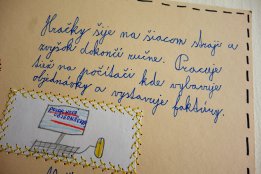 Hračky šije na šiacom stroji a
zvyšok dokončí ručne. Pracuje
tiež na počítači kde vybavuje
objednávky a vystavuje faktúry.
OBJEDNÁVKA